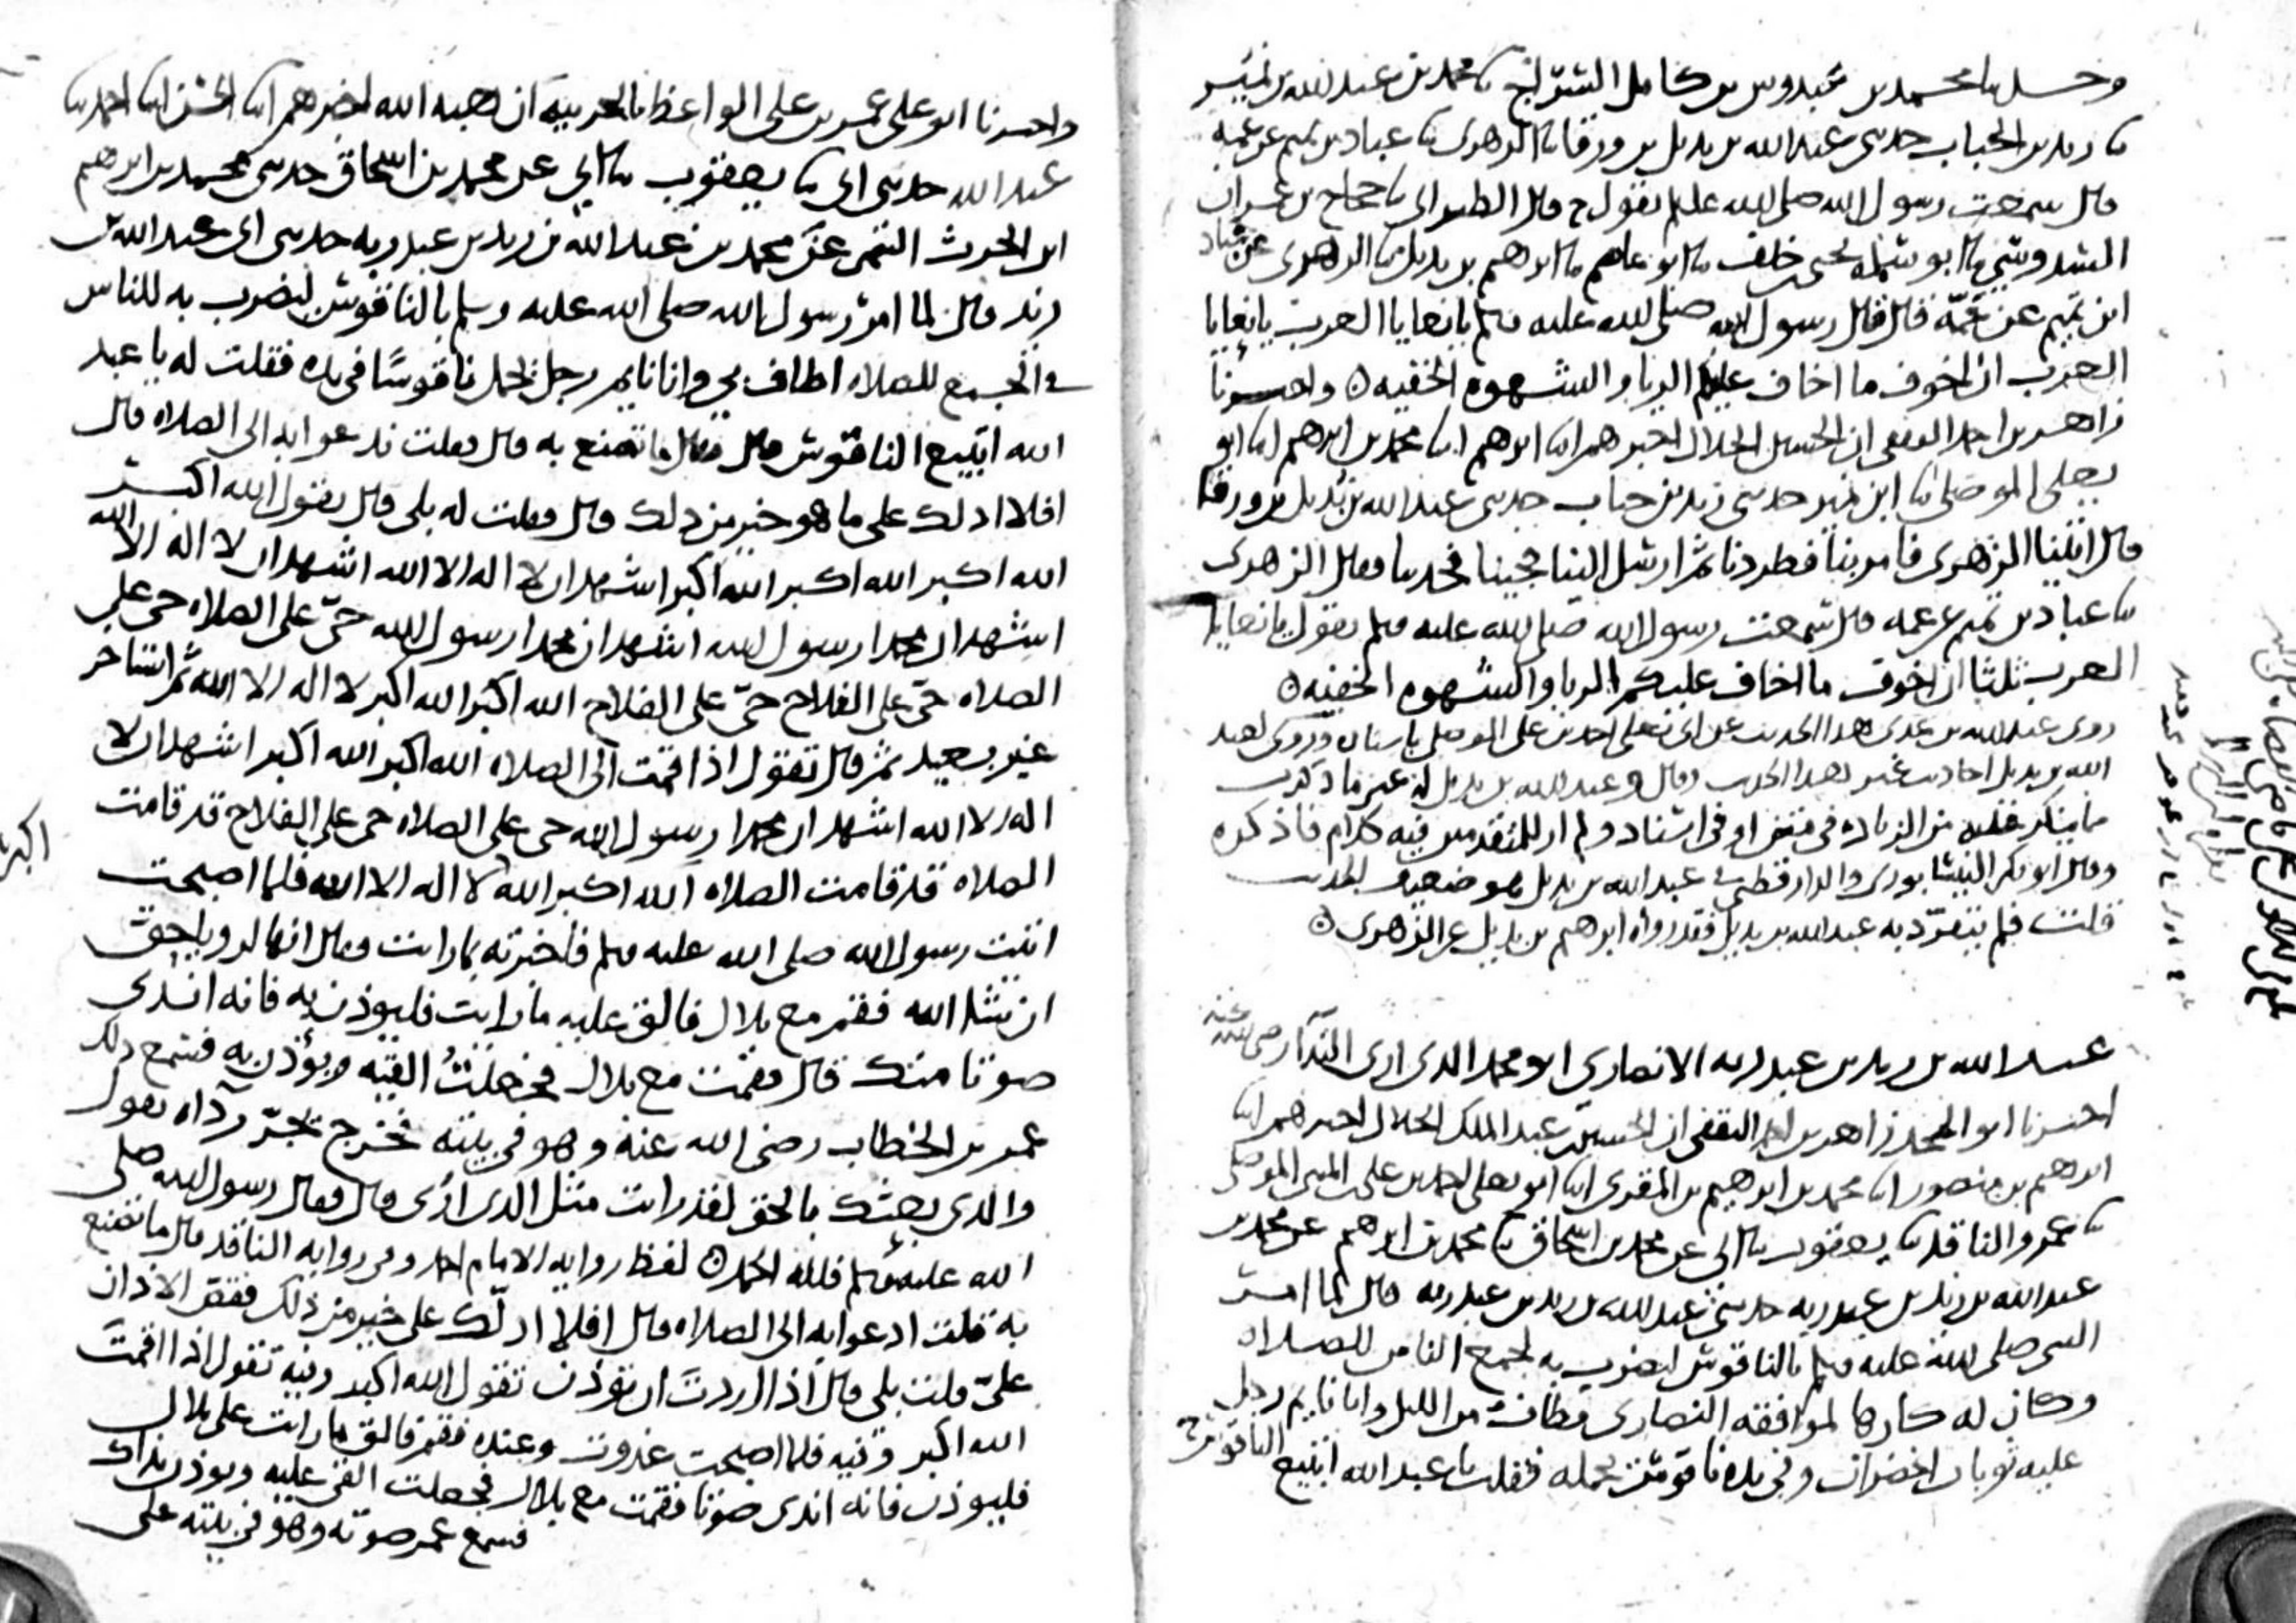 وحدثنا محمد بن عبدوس بن كامل السراج ثنا محمد بن عبد الله بن نمير
ثنا زيد بن الحباب حدثني عبد الله بن بديل بن ورقا ثنا الزهري ثنا عباد بن تميم عن عمه
قال سمعت رسول الله صلى الله عليه وسلم يقول ح قال الطبراني ثنا حجاج بن عمران
السدوسي ثنا ابو سلمه يحيى بن خلف ثنا ابو عاصم ثنا ابرهيم بن بديل ثنا الزهري عن عباد
ابن تميم عن عمه قال قال رسول الله صلى الله عليه وسلم يا نعايا العرب يا نعايا
العرب ان اخوف ما اخاف عليكم الريا والشهوه الخفيه ۞ واخبرنا
زاهر بن احمد الثقفي ان الحسين الخلال اخبرهم ابنا ابرهيم ابنا محمد بن ابرهيم ابنا ابو
يعلى الموصلي ثنا ابن نمير حدثني زيد بن حباب حدثني عبد الله بن بديل بن ورقا
قال اتينا الزهري فامر بنا فطردنا ثم ارسل الينا فجينا فحدثنا فقال الزهري
ثنا عباد بن تميم عن عمه قال سمعت رسول الله صلى الله عليه وسلم يقول يا نعايا
العرب ثلثا ان اخوف ما اخاف عليكم الريا والشهوه الخفيه ۞
روى عبد الله بن عدي هذا الحديث عن ابي يعلى احمد بن علي الموصلي باسناده وروى لعبد
الله بن بديل احاديث غير هذا الحديث وقال وعبد الله بن بديل له غير ما ذكرت
مما ينكر عليه من الزياده في متن او في اسناد ولم ار للمتقدمين فيه كلام فاذكره
وقال ابو بكر النيسابوري والدارقطني عبد الله بن بديل هو ضعيف الحديث
قلت فلم يتفرد به عبد الله بن بديل فقد رواه ابرهيم بن بديل عن الزهري ۞
عبد الله بن زيد بن عبد ربه الانصاري ابو محمد الذي اري الندا رضي الله عنه
اخبرنا ابو المجد زاهر بن احمد الثقفي ان الحسين بن عبد الملك الخلال اخبرهم ابنا
ابرهيم بن منصور ابنا محمد بن ابرهيم بن المقري ابنا ابو يعلى احمد بن علي بن المثنى الموصلي
ثنا عمرو الناقد ثنا يعقوب ثنا ابي عن محمد بن اسحاق ثنا محمد بن ابرهيم عن محمد بن
عبد الله بن زيد بن عبد ربه حدثني عبد الله بن زيد بن عبد ربه قال لما امر
النبي صلى الله عليه وسلم بالناقوس ليضرب به لجمع الناس للصلاه
وكان له كارها لموافقه النصارى فطاف من الليل وانا نايم رجل
عليه ثوبان اخضران وفي يده ناقوس يحمله فقلت يا عبد الله اتبيع الناقوس
واخبرنا ابو علي عمر بن علي الواعظ بالحربيه ان هبه الله اخبرهم ابنا الحسن ابنا احمد ثنا
عبد الله حدثني ابي ثنا يعقوب ثنا ابي عن محمد بن اسحاق حدثني محمد بن ابرهيم
ابن الحرث التيمي عن محمد بن عبد الله بن زيد بن عبد ربه حدثني ابي عبد الله بن
زيد قال لما امر رسول الله صلى الله عليه وسلم بالناقوس ليضرب به للناس
في الجمع للصلاه اطاف بي وانا نايم رجل يحمل ناقوسا في يده فقلت له يا عبد
الله اتبيع الناقوس قال فقال ما تصنع به قال فقلت ندعو به الى الصلاه قال
افلا ادلك على ما هو خير من ذلك قال فقلت له بلى قال يقول الله اكبر
الله اكبر الله اكبر الله اكبر اشهد ان لا اله الا الله اشهد ان لا اله الا الله
اشهد ان محمدا رسول الله اشهد ان محمدا رسول الله حي على الصلاه حي على
الصلاه حي على الفلاح حي على الفلاح الله اكبر الله اكبر لا اله الا الله ثم استاخر
غير بعيد ثم قال تقول اذا اقمت الى الصلاه الله اكبر الله اكبر اشهد ان لا
اله الا الله اشهد ان محمدا رسول الله حي على الصلاه حي على الفلاح قد قامت
الصلاه قد قامت الصلاه الله اكبر الله لا اله الا الله فلما اصبحت
اكبر
اتيت رسول الله صلى الله عليه وسلم فاخبرته بما رايت فقال انها لرويا حق
ان شا الله فقم مع بلال فالق عليه ما رايت فليوذن به فانه اندى
صوتا منك قال فقمت مع بلال فجعلت القيه ويؤذن به فسمع ذلك
عمر بن الخطاب رضي الله عنه وهو في بيته فخرج يجر رداه يقول
والذي بعثك بالحق لقد رايت مثل الذي اري قال فقال رسول الله صلى
الله عليه وسلم فلله الحمد ۞ لفظ روايه الامام احمد وفي روايه الناقد قال ما تصنع
به قلت ادعو به الى الصلاه قال افلا ادلك على خير من ذلك فقص الاذان
علي قلت بلى قال اذا اردت ان توذن تقول الله اكبر وفيه تقول اذا اقمت
الله اكبر وفيه فلما اصبحت غدوت وعنده فقم فالق ما رايت على بلال
فليوذن فانه اندى صوتا فقمت مع بلال فجعلت القي عليه ويوذن بذاك
فسمع عمر صوته وهو في بيته على